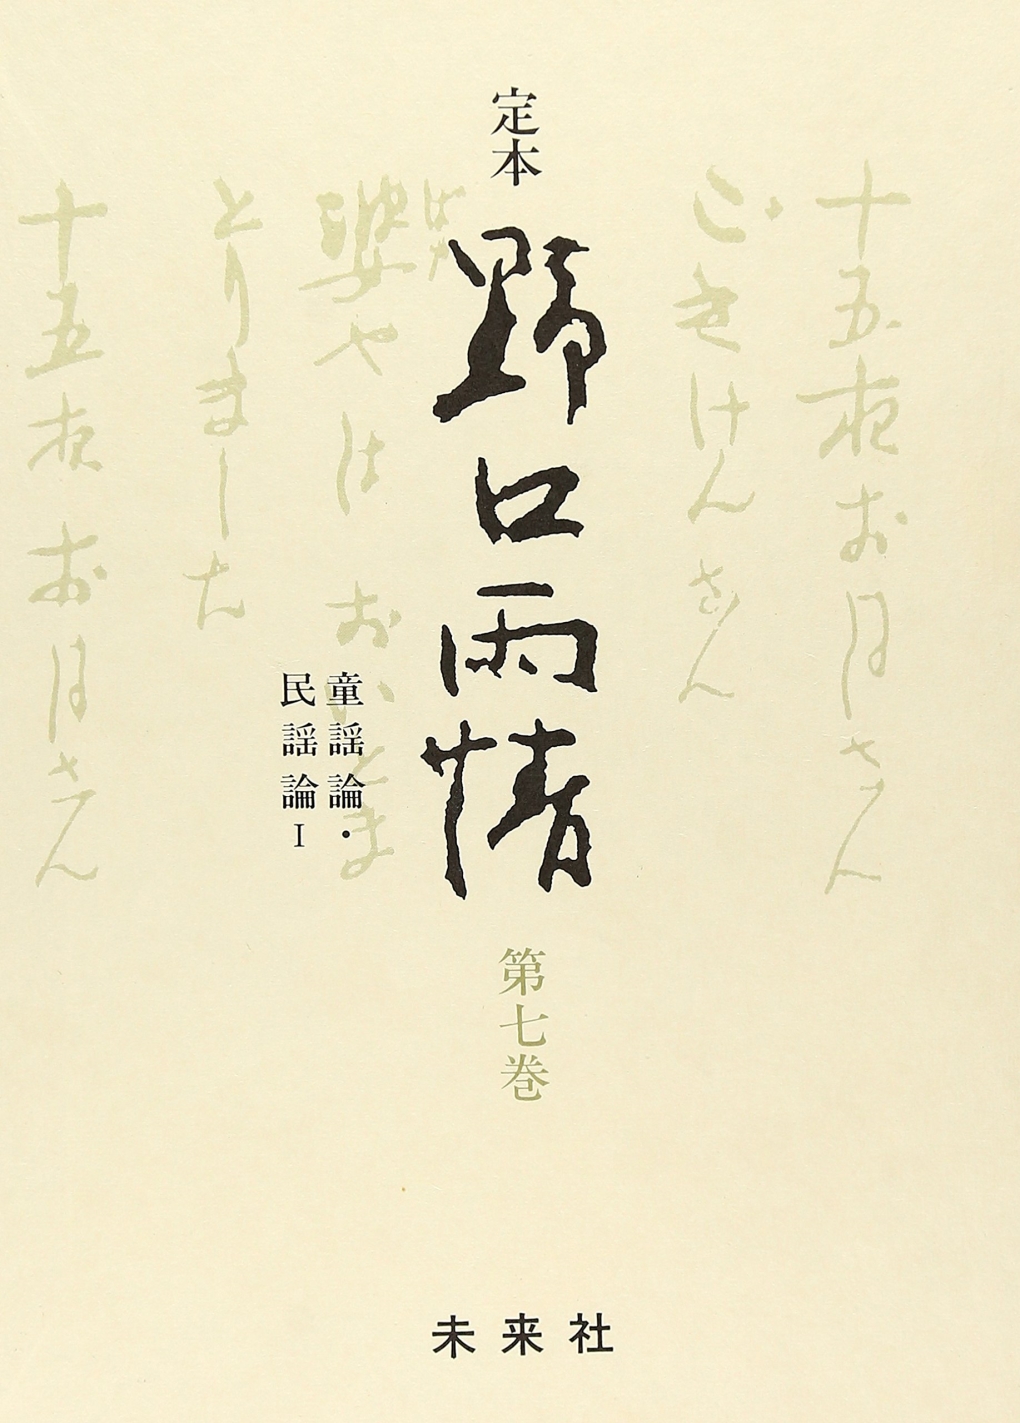 定本
野口雨情
第七巻
童謡論・
民謡論Ⅰ
十五夜お月さん
ごきげんさん
婆やは おいとま
とりました
十五夜お月さん
未来社